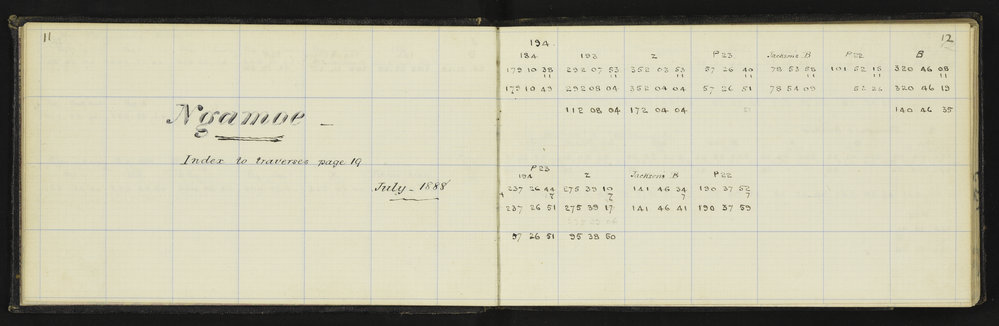 11
Ngamoe -
Index to traverses page 19
July - 1888
12
194.
184 193 Z P 23 Jacksons B P 22 B
179 10 38 292 07 53 352 03 53 57 26 40 78 53 58 101 52 15 320 46 08
11 11 11 11 11 11 11
179 10 49 292 08 04 352 04 04 57 26 51 78 54 09 52 26 320 46 19
112 08 04 172 04 04 140 46 35
P 23
194 Z Jacksons B P 22
237 26 44 275 39 10 141 46 34 190 37 52
7 7 7 7
237 26 51 275 39 17 141 46 41 190 37 59
57 26 51 95 38 50